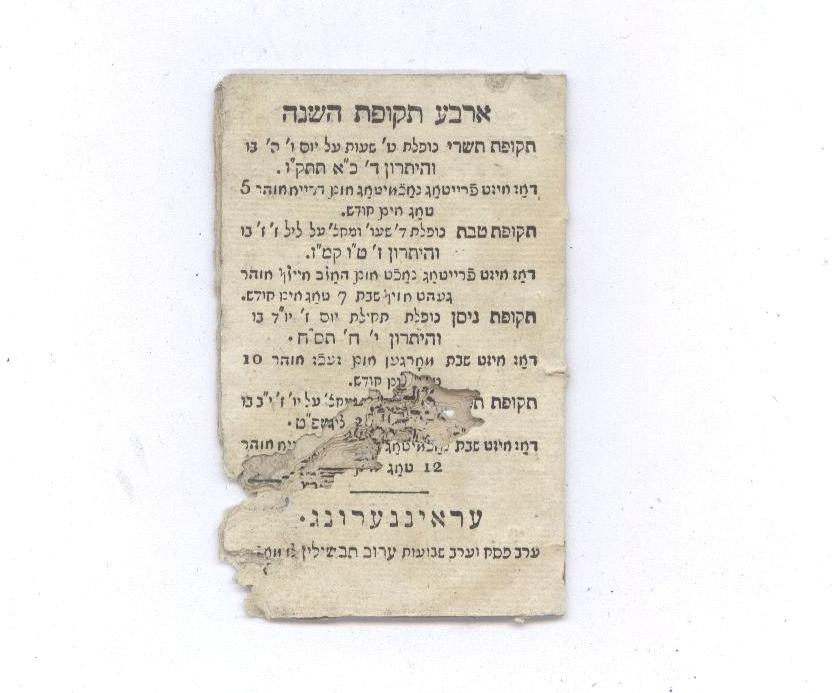 ארבע תקופת השנה
תקופת תשרי נופלת ט' שעות על יום ו' ה' בו
והיתרון ד' כ"א תתק"ו .
דאז אינט פרייטאג נאכמיטאג אום דרייא אוהר 5
טאג אין חודש.
תקופת טבת נופלת ד' שעו' ומחצ' על ליל ז' ז' בו
והיתרון ז' ט"ו קמ"ו.
דאז אינט פרייטאג נאכט אום האלב אוהר
געהט אויף שבת 7 טאג אין חודש.
תקופת ניסן נופלת תחילת יום ז' יו"ד בו
והיתרון י' ח' תס"ח.
דאז אינט שבת מארגען אום זעכז אוהר 10
חודש.
תקופת על יו' ז' י"ב בו
דאז אינט שבת אוהר
12 טאג
עראיננערונג.
ערב פסח וערב שבועות ערוב תבשילין